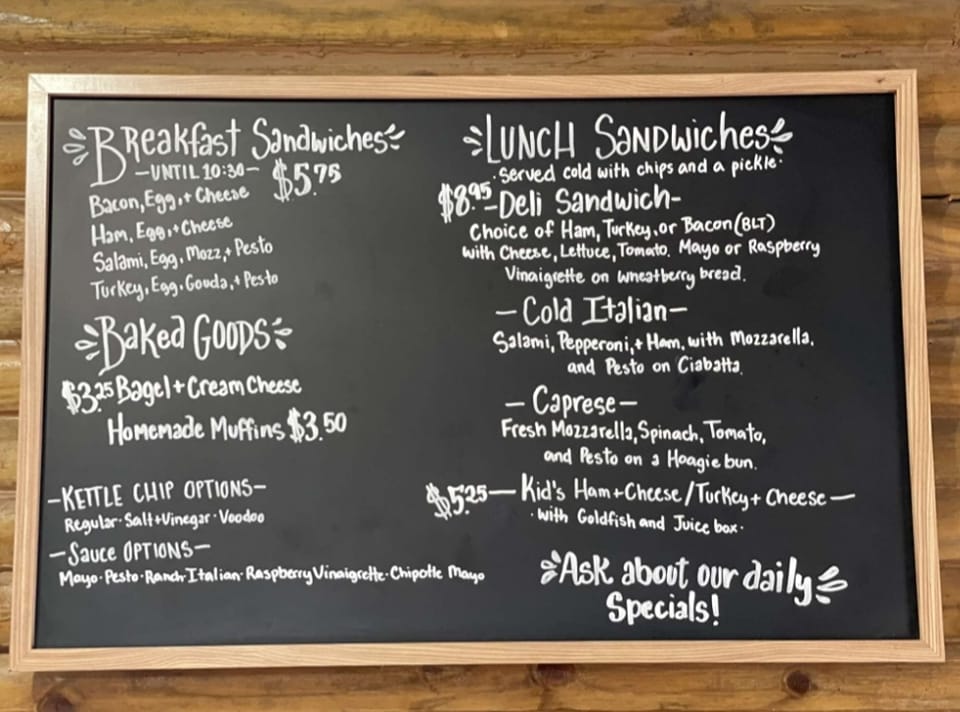 Breakfast Sandwiches
-UNTIL 10:30- $5.75
Bacon, Egg, + Cheese
Ham, Egg, + Cheese
Salami, Egg, Mozz, + Pesto
Turkey, Egg, Gouda, + Pesto
Baked Goods
$3.25 Bagel + Cream Cheese
Homemade Muffins $3.50
-KETTLE CHIP OPTIONS-
Regular · Salt + Vinegar · Voodoo
-Sauce OPTIONS-
Mayo · Pesto · Ranch · Italian · Raspberry Vinaigrette · Chipotle Mayo
LUNCH Sandwiches
· Served cold with chips and a pickle ·
$8.95 -Deli Sandwich-
Choice of Ham, Turkey, or Bacon (BLT)
with Cheese, Lettuce, Tomato, Mayo or Raspberry
Vinaigrette on wheatberry bread.
-Cold Italian-
Salami, Pepperoni, + Ham, with Mozzarella,
and Pesto on Ciabatta.
-Caprese-
Fresh Mozzarella, Spinach, Tomato,
and Pesto on a Hoagie bun.
$5.25 -Kid's Ham + Cheese / Turkey + Cheese-
· with Goldfish and Juice box ·
Ask about our daily
Specials!